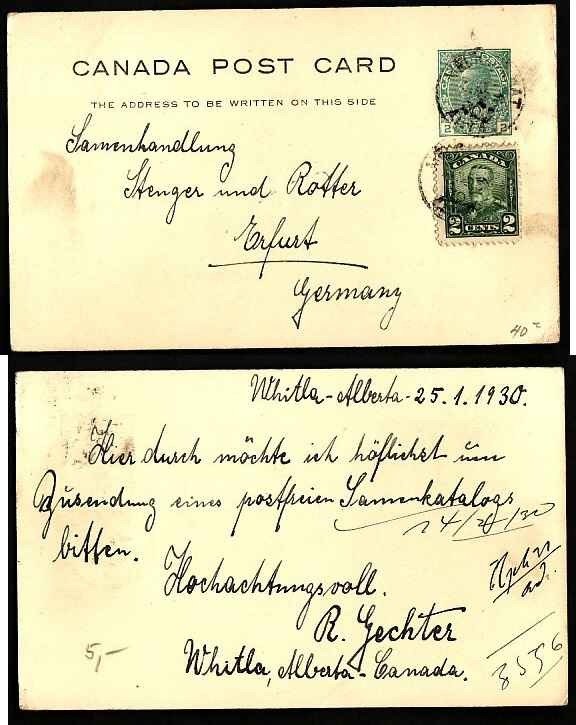 CANADA POST CARD
THE ADDRESS TO BE WRITTEN ON THIS SIDE
CANADA POSTAGE
2 2
CANADA
2 CENTS 2
Samenhandlung
Stenger und Rotter
Erfurt
Germany
40
Whitla-Alberta-25.1.1930.
Hierdurch möchte ich höflichst um
Zusendung eines postfreien Samenkatalogs
bitten.
Hochachtungsvoll.
R. Gechter
Whitla, Alberta-Canada.
5,-
3556